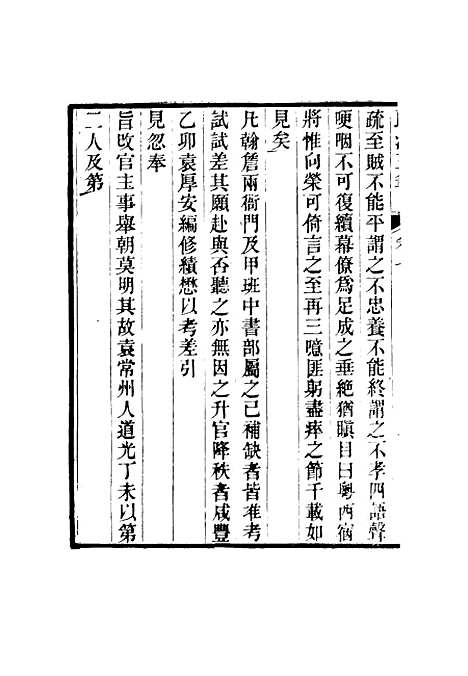 疏至賊不能平謂之不忠養不能終謂之不孝四語聲
哽咽不可復續幕僚爲足成之垂絶猶瞋目曰粵西宿
將惟向榮可倚言之至再三噫匪躬盡瘁之節千載如
見矣
凡翰詹兩衙門及甲班中書部屬之已補缺者皆准考
試試差其願赴與否聽之亦無因之升官降秩者咸豐
乙卯袁厚安編修績懋以考差引
見忽奉
旨改官主事舉朝莫明其故袁常州人道光丁未以第
二人及第